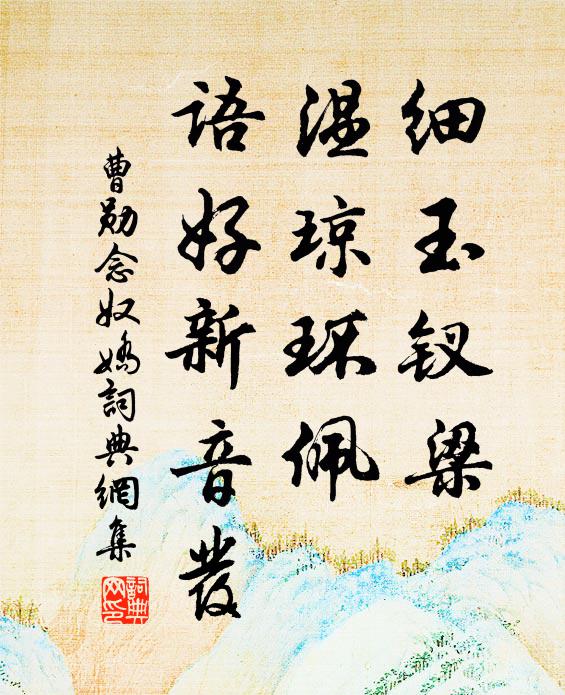 细玉钗梁
温琼环佩
语好新音发
曹勋念奴娇詞典網集
詞典网印